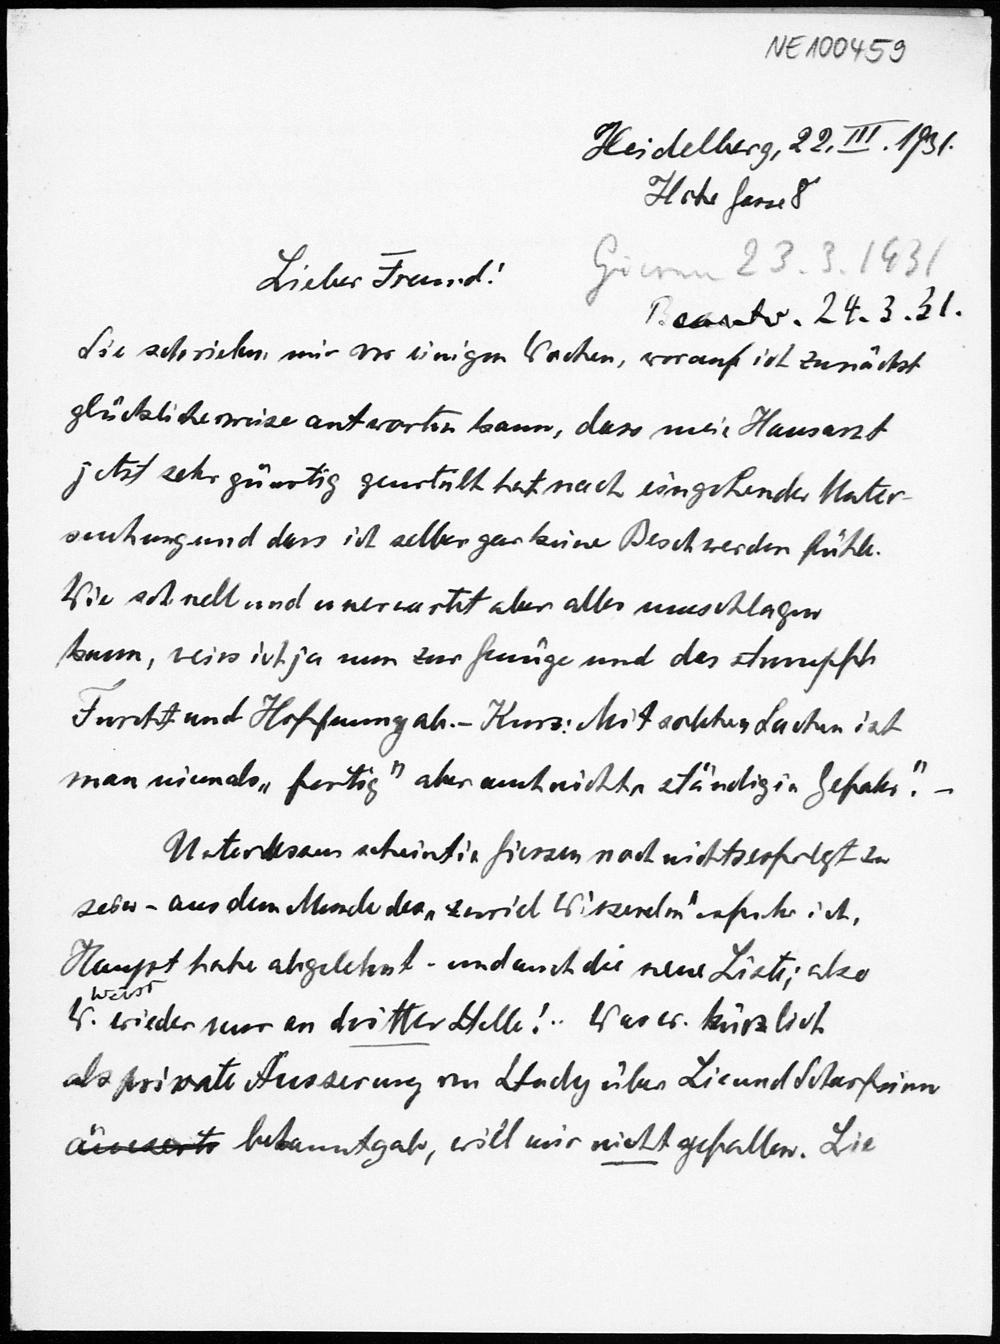 NE100459
Heidelberg, 22. III. 1931.
Hohe Gasse 8
Lieber Freund!
23.3.1931
Beantw. 24.3.31.
Sie schrieben mir vor einigen Wochen, worauf ich zunächst
glücklicherweise antworten kann, dass mein Hausarzt
jetzt sehr günstig geurteilt hat nach eingehender Unter-
suchung und dass ich selber gar keine Beschwerden fühle.
Wie schnell und unerwartet aber alles umschlagen
kann, weiss ich ja nun zur Genüge und das stumpft
Furcht und Hoffnung ab. – Kurz: Mit solchen Sachen ist
man niemals „fertig" aber auch nicht „ständig in Gefahr". –
Unterdessen scheint in Giessen noch nichts erfolgt zu
sein – aus dem Munde des „zuviel Wissenden" erfuhr ich,
Haupt habe abgelehnt – und auch die neue Liste; also
W. weist wieder nur an dritter Stelle! .. Was er kürzlich
als private Äusserung von Study über Sie und Scharfsinn
äusserte bekanntgab, will mir nicht gefallen. Sie